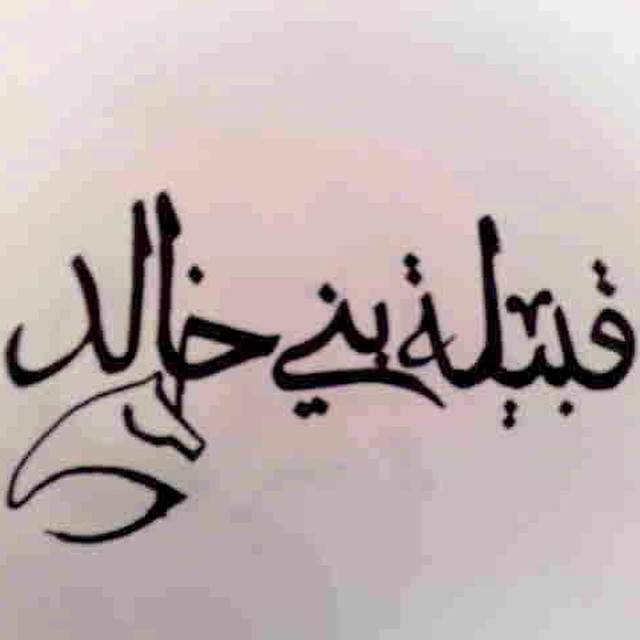 قبيلة بني خالد